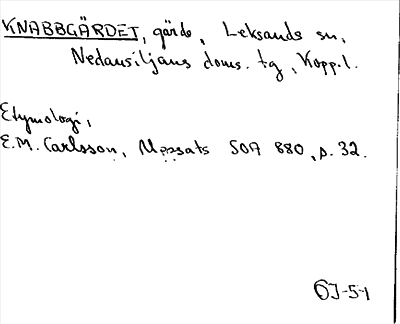 KNABBGÄRDET, gärde, Leksands sn,
Nedansiljans doms. tg, Kopp.l.
Etymologi,
E.M. Carlsson, Uppsats SOA 880, p. 32.